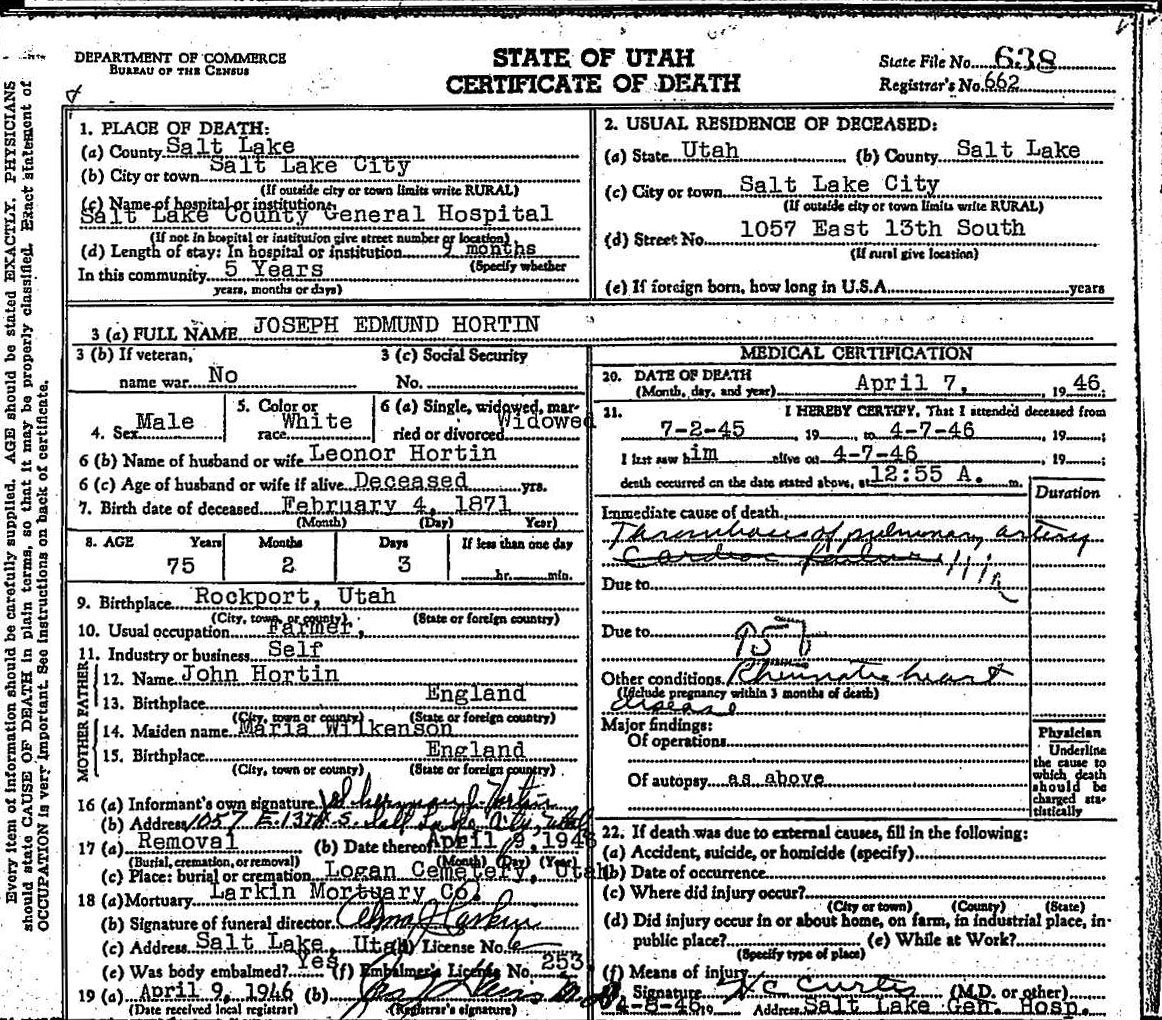 DEPARTMENT OF COMMERCE
BUREAU OF THE CENSUS
STATE OF UTAH
CERTIFICATE OF DEATH
State File No. 638
Registrar's No. 662
Every item of information should be carefully supplied. AGE should be stated EXACTLY. PHYSICIANS
should state CAUSE OF DEATH in plain terms, so that it may be properly classified. Exact statement of
OCCUPATION is very important. See instructions on back of certificate.
1. PLACE OF DEATH:
(a) County Salt Lake
(b) City or town Salt Lake City
(If outside city or town limits write RURAL)
(c) Name of hospital or institution:
Salt Lake County General Hospital
(If not in hospital or institution give street number or location)
(d) Length of stay: In hospital or institution 9 months
(Specify whether
In this community 5 Years
years, months or days)
2. USUAL RESIDENCE OF DECEASED:
(a) State Utah (b) County Salt Lake
(c) City or town Salt Lake City
(If outside city or town limits write RURAL)
(d) Street No. 1057 East 13th South
(If rural give location)
(e) If foreign born, how long in U.S.A. years
3 (a) FULL NAME JOSEPH EDMUND HORTIN
3 (b) If veteran,
name war No
3 (c) Social Security
No.
4. Sex Male
5. Color or
race White
6 (a) Single, widowed, mar-
ried or divorced Widowed
6 (b) Name of husband or wife Leonor Hortin
6 (c) Age of husband or wife if alive Deceased yrs.
7. Birth date of deceased February 4, 1871
(Month) (Day) Year)
8. AGE Years Months Days If less than one day
75 2 3 hr. min.
9. Birthplace Rockport, Utah
(City, town, or county) (State or foreign country)
10. Usual occupation Farmer,
11. Industry or business Self
FATHER
12. Name John Hortin
13. Birthplace England
(City, town or county) (State or foreign country)
MOTHER
14. Maiden name Maria Wilkenson
15. Birthplace England
(City, town or county) (State or foreign country)
16 (a) Informant's own signature Hortin
(b) Address 1057 E. 13th S. Salt Lake City, Utah
17 (a) Removal (b) Date thereof April 9, 1946
(Burial, cremation, or removal) (Month) (Day) (Year)
(c) Place: burial or cremation Logan Cemetery, Utah
18 (a) Mortuary Larkin Mortuary Co.
(b) Signature of funeral director Alma J Larkin
(c) Address Salt Lake, Utah (d) License No. 6
(e) Was body embalmed? Yes (f) Embalmer's License No. 253
19 (a) April 9, 1946 (b)
(Date received local registrar) (Registrar's signature)
MEDICAL CERTIFICATION
20. DATE OF DEATH
(Month, day, and year) April 7, 1946
21. I HEREBY CERTIFY, That I attended deceased from
7-2-45, 19 to 4-7-46, 19;
I last saw him alive on 4-7-46, 19;
death occurred on the date stated above, at 12:55 A. m.
Duration
Immediate cause of death
Thrombosis of pulmonary artery
Cardiac failure
Due to
Due to
95b
Other conditions Rheumatic heart
(Include pregnancy within 3 months of death)
disease
Major findings:
Of operations
Of autopsy as above
Physician
Underline
the cause to
which death
should be
charged sta-
tistically
22. If death was due to external causes, fill in the following:
(a) Accident, suicide, or homicide (specify)
(b) Date of occurrence
(c) Where did injury occur?
(City or town) (County) (State)
(d) Did injury occur in or about home, on farm, in industrial place, in-
public place? (e) While at Work?
(Specify type of place)
(f) Means of injury
Signature H C Curtis (M.D. or other)
4-8-46 19 Address Salt Lake Gen. Hosp.